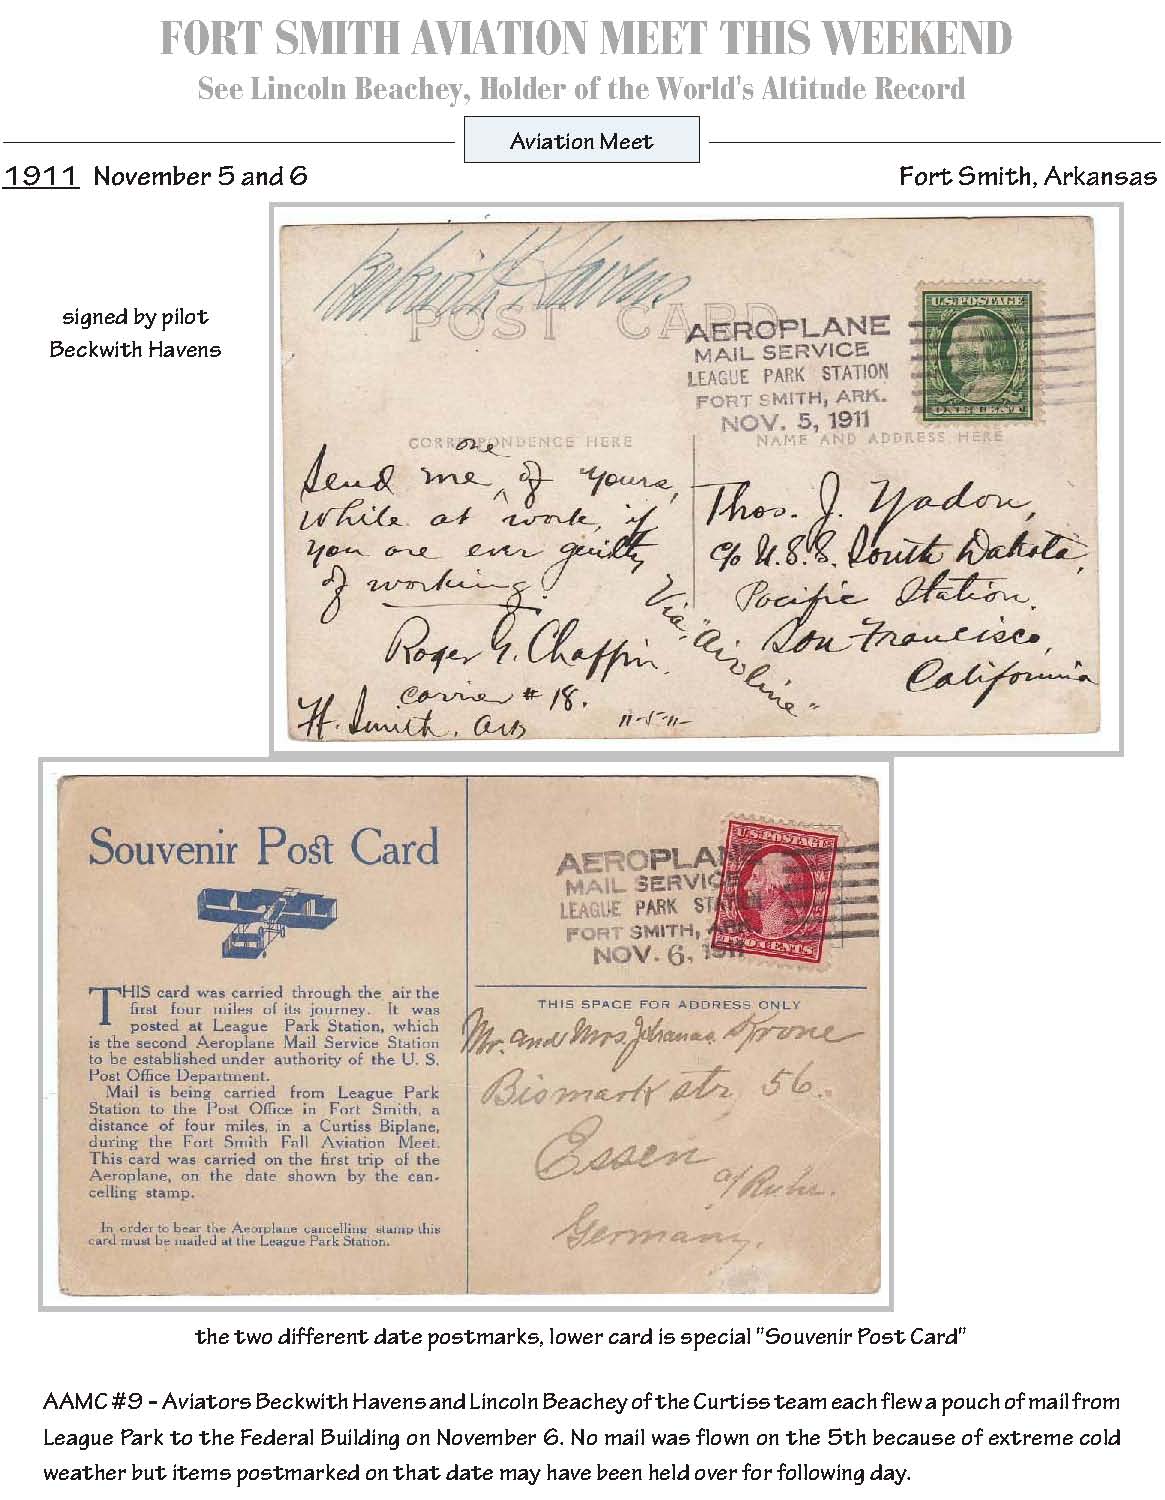 FORT SMITH AVIATION MEET THIS WEEKEND
See Lincoln Beachey, Holder of the World's Altitude Record
Aviation Meet
1911 November 5 and 6
Fort Smith, Arkansas
signed by pilot
Beckwith Havens
Beckwith Havens
POST CARD
AEROPLANE
MAIL SERVICE
LEAGUE PARK STATION
FORT SMITH, ARK.
NOV. 5, 1911
U.S. POSTAGE
ONE CENT
CORRESPONDENCE HERE
NAME AND ADDRESS HERE
Send me one of yours,
while at work, if
you are ever guilty
of working.
Roger G. Chaffin.
Carrier # 18.
Ft. Smith, Ark
11-5-11-
Via "Airline"
Thos. J. Yadon,
c/o U.S.S. South Dakota,
Pacific Station,
San Francisco,
California
Souvenir Post Card
THIS card was carried through the air the
first four miles of its journey. It was
posted at League Park Station, which
is the second Aeroplane Mail Service Station
to be established under authority of the U. S.
Post Office Department.
Mail is being carried from League Park
Station to the Post Office in Fort Smith, a
distance of four miles, in a Curtiss Biplane,
during the Fort Smith Fall Aviation Meet.
This card was carried on the first trip of the
Aeroplane, on the date shown by the can-
celling stamp.
In order to bear the Aeorplane cancelling stamp this
card must be mailed at the League Park Station.
AEROPLANE
MAIL SERVICE
LEAGUE PARK STATION
FORT SMITH, ARK.
NOV. 6, 1911
U.S. POSTAGE
TWO CENTS
THIS SPACE FOR ADDRESS ONLY
Mr. and Mrs. Krone
Bismark str, 56.
Essen
a/ Ruhr.
Germany.
the two different date postmarks, lower card is special "Souvenir Post Card"
AAMC #9 - Aviators Beckwith Havens and Lincoln Beachey of the Curtiss team each flew a pouch of mail from
League Park to the Federal Building on November 6. No mail was flown on the 5th because of extreme cold
weather but items postmarked on that date may have been held over for following day.